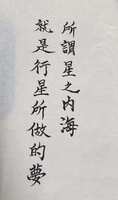 所謂星之內海
就是行星所做的夢